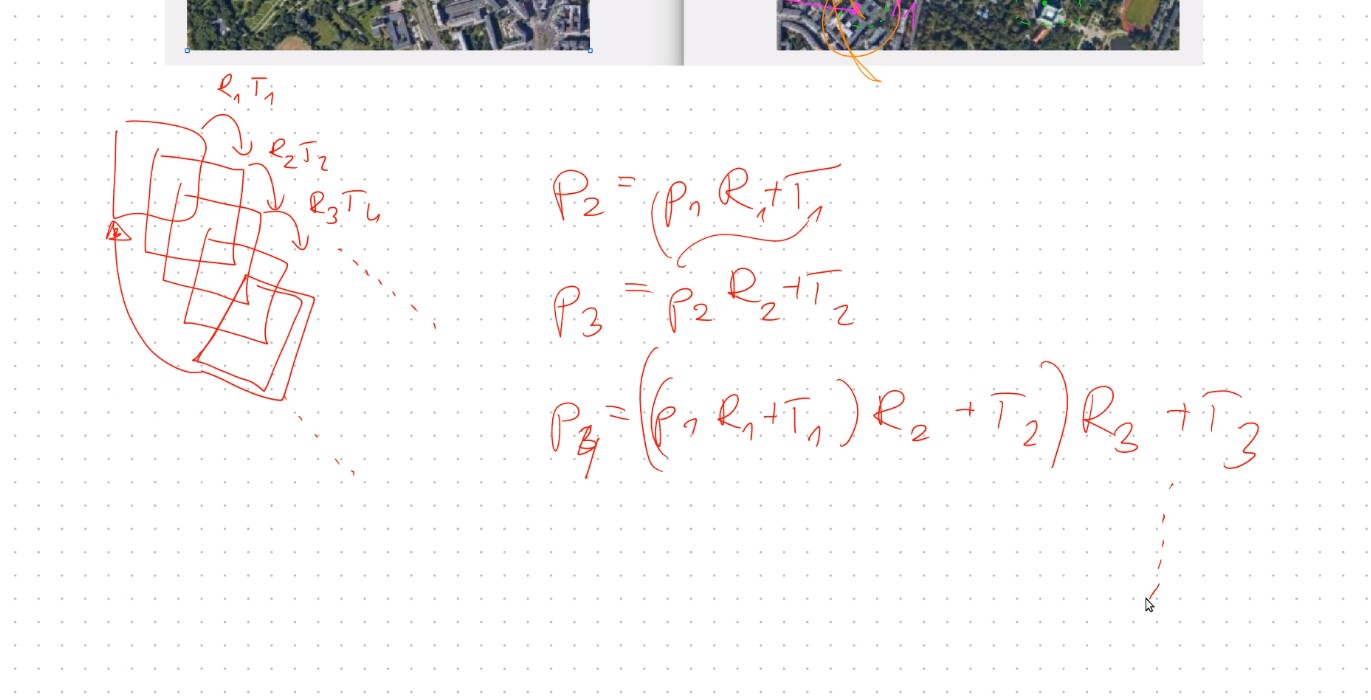 R₁T₁
R₂T₂
R₃T₄
P₂ = P₁ R₁+T₁
P₃ = P₂ R₂+T₂
P₄ = ((P₁ R₁+T₁) R₂ + T₂) R₃ + T₃